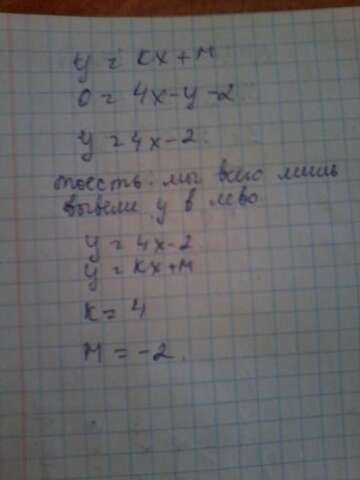 y = kx + м
0 = 4x - y - 2
y = 4x - 2
тоесть мы всего лишь
вывели y в лево
y = 4x - 2
y = kx + м
k = 4
м = -2.